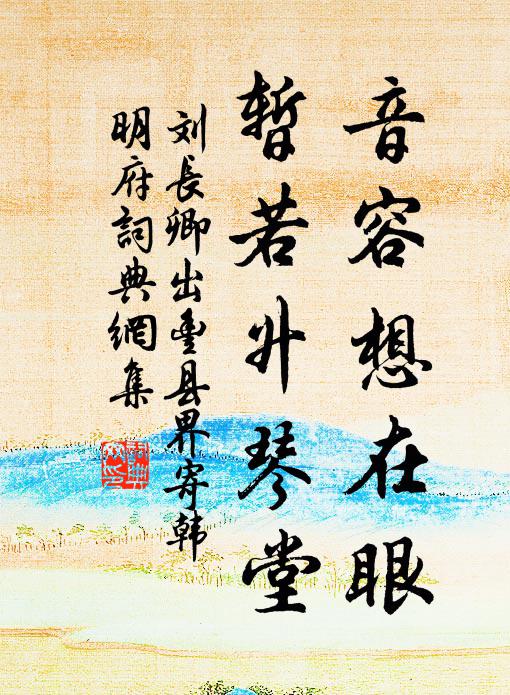 音容想在眼
暂若升琴堂
刘長卿出豊县界寄韩
明府詞典網集